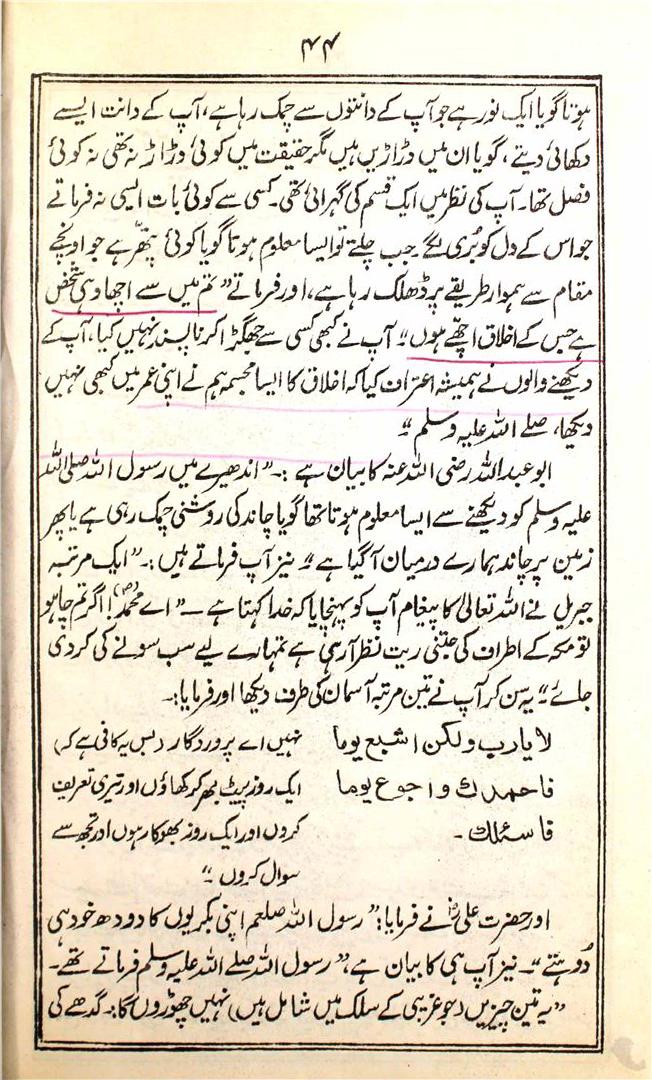 ۴۴
ہوتا گویا ایک نور ہے جو آپ کے دانتوں سے چمک رہا ہے، آپ کے دانت ایسے
دکھائی دیتے، گویا ان میں دڑاڑیں ہیں مگر حقیقت میں کوئی دڑاڑ نہ تھی نہ کوئی
فصل تھا۔ آپ کی نظر میں ایک قسم کی گہرائی تھی۔ کسی سے کوئی بات ایسی نہ فرماتے
جو اس کے دل کو بُری لگے جب چلتے تو ایسا معلوم ہوتا گویا کوئی پتھر ہے جو اونچے
مقام سے ہموار طریقے پر ڈھلک رہا ہے، اور فرماتے ”تم میں سے اچھا وہی شخص
ہے جس کے اخلاق اچھے ہوں“ آپ نے کبھی کسی سے جھگڑا کرنا پسند نہیں کیا، آپ کے
دیکھنے والوں نے ہمیشہ اعتراف کیا کہ اخلاق کا ایسا مجسمہ ہم نے اپنی عمر میں کبھی نہیں
دیکھا، صلے اللہ علیہ وسلم“
ابو عبداللہ رضی اللہ عنہ کا بیان ہے :۔ ”اندھیرے میں رسول اللہ صلی اللہ
علیہ وسلم کو دیکھنے سے ایسا معلوم ہوتا تھا گویا چاند کی روشنی چمک رہی ہے یا پھر
زمین پر چاند ہمارے درمیان آگیا ہے“ نیز آپ فرماتے ہیں :۔ ”ایک مرتبہ
جبریل نے اللہ تعالیٰ کا پیغام آپ کو پہنچایا کہ خدا کہتا ہے ۔ ”اے محمد(ص)! اگر تم چاہو
تو مکہ کے اطراف کی جتنی ریت نظر آرہی ہے تمہارے لیے سب سونے کی کردی
جائے“ یہ سن کر آپ نے تین مرتبہ آسمان کی طرف دیکھا اور فرمایا:۔
لا یا رب ولکن اشبع یوما نہیں اے پروردگار (بس یہ کافی ہے کہ)
فاحمدك واجوع یوما ایک روز پیٹ بھر کر کھاؤں اور تیری تعریف
فاسئلك ۔ کروں اور ایک روز بھوکا رہوں اور تجھ سے
سوال کروں“
اور حضرت علیؓ نے فرمایا: ”رسول اللہ صلعم اپنی بکریوں کا دودھ خود ہی
دُوہتے“۔ نیز آپ ہی کا بیان ہے، ”رسول اللہ صلے اللہ علیہ وسلم فرماتے تھے۔
”یہ تین چیزیں (جو غریبی کے سلک میں شامل ہیں) نہیں چھوڑوں گا: گدھے کی